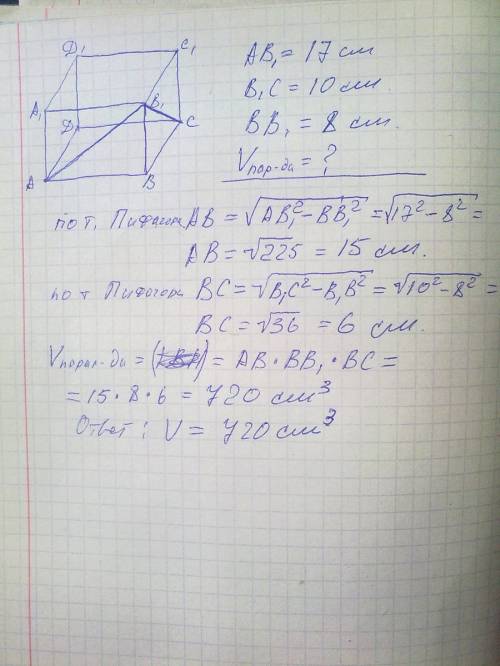 Д₁ C₁
A₁ B₁
Д C
A B
AB₁ = 17 см
B₁C = 10 см.
BB₁ = 8 см.
Vпар-да = ?
по т. Пифагора AB = √AB₁² − BB₁² = √17² − 8² =
AB = √225 = 15 см.
по т Пифагора BC = √B₁C² − B₁B² = √10² − 8² =
BC = √36 = 6 см.
Vпарал-да = = AB · BB₁ · BC =
= 15 · 8 · 6 = 720 см³
Ответ: V = 720 см³